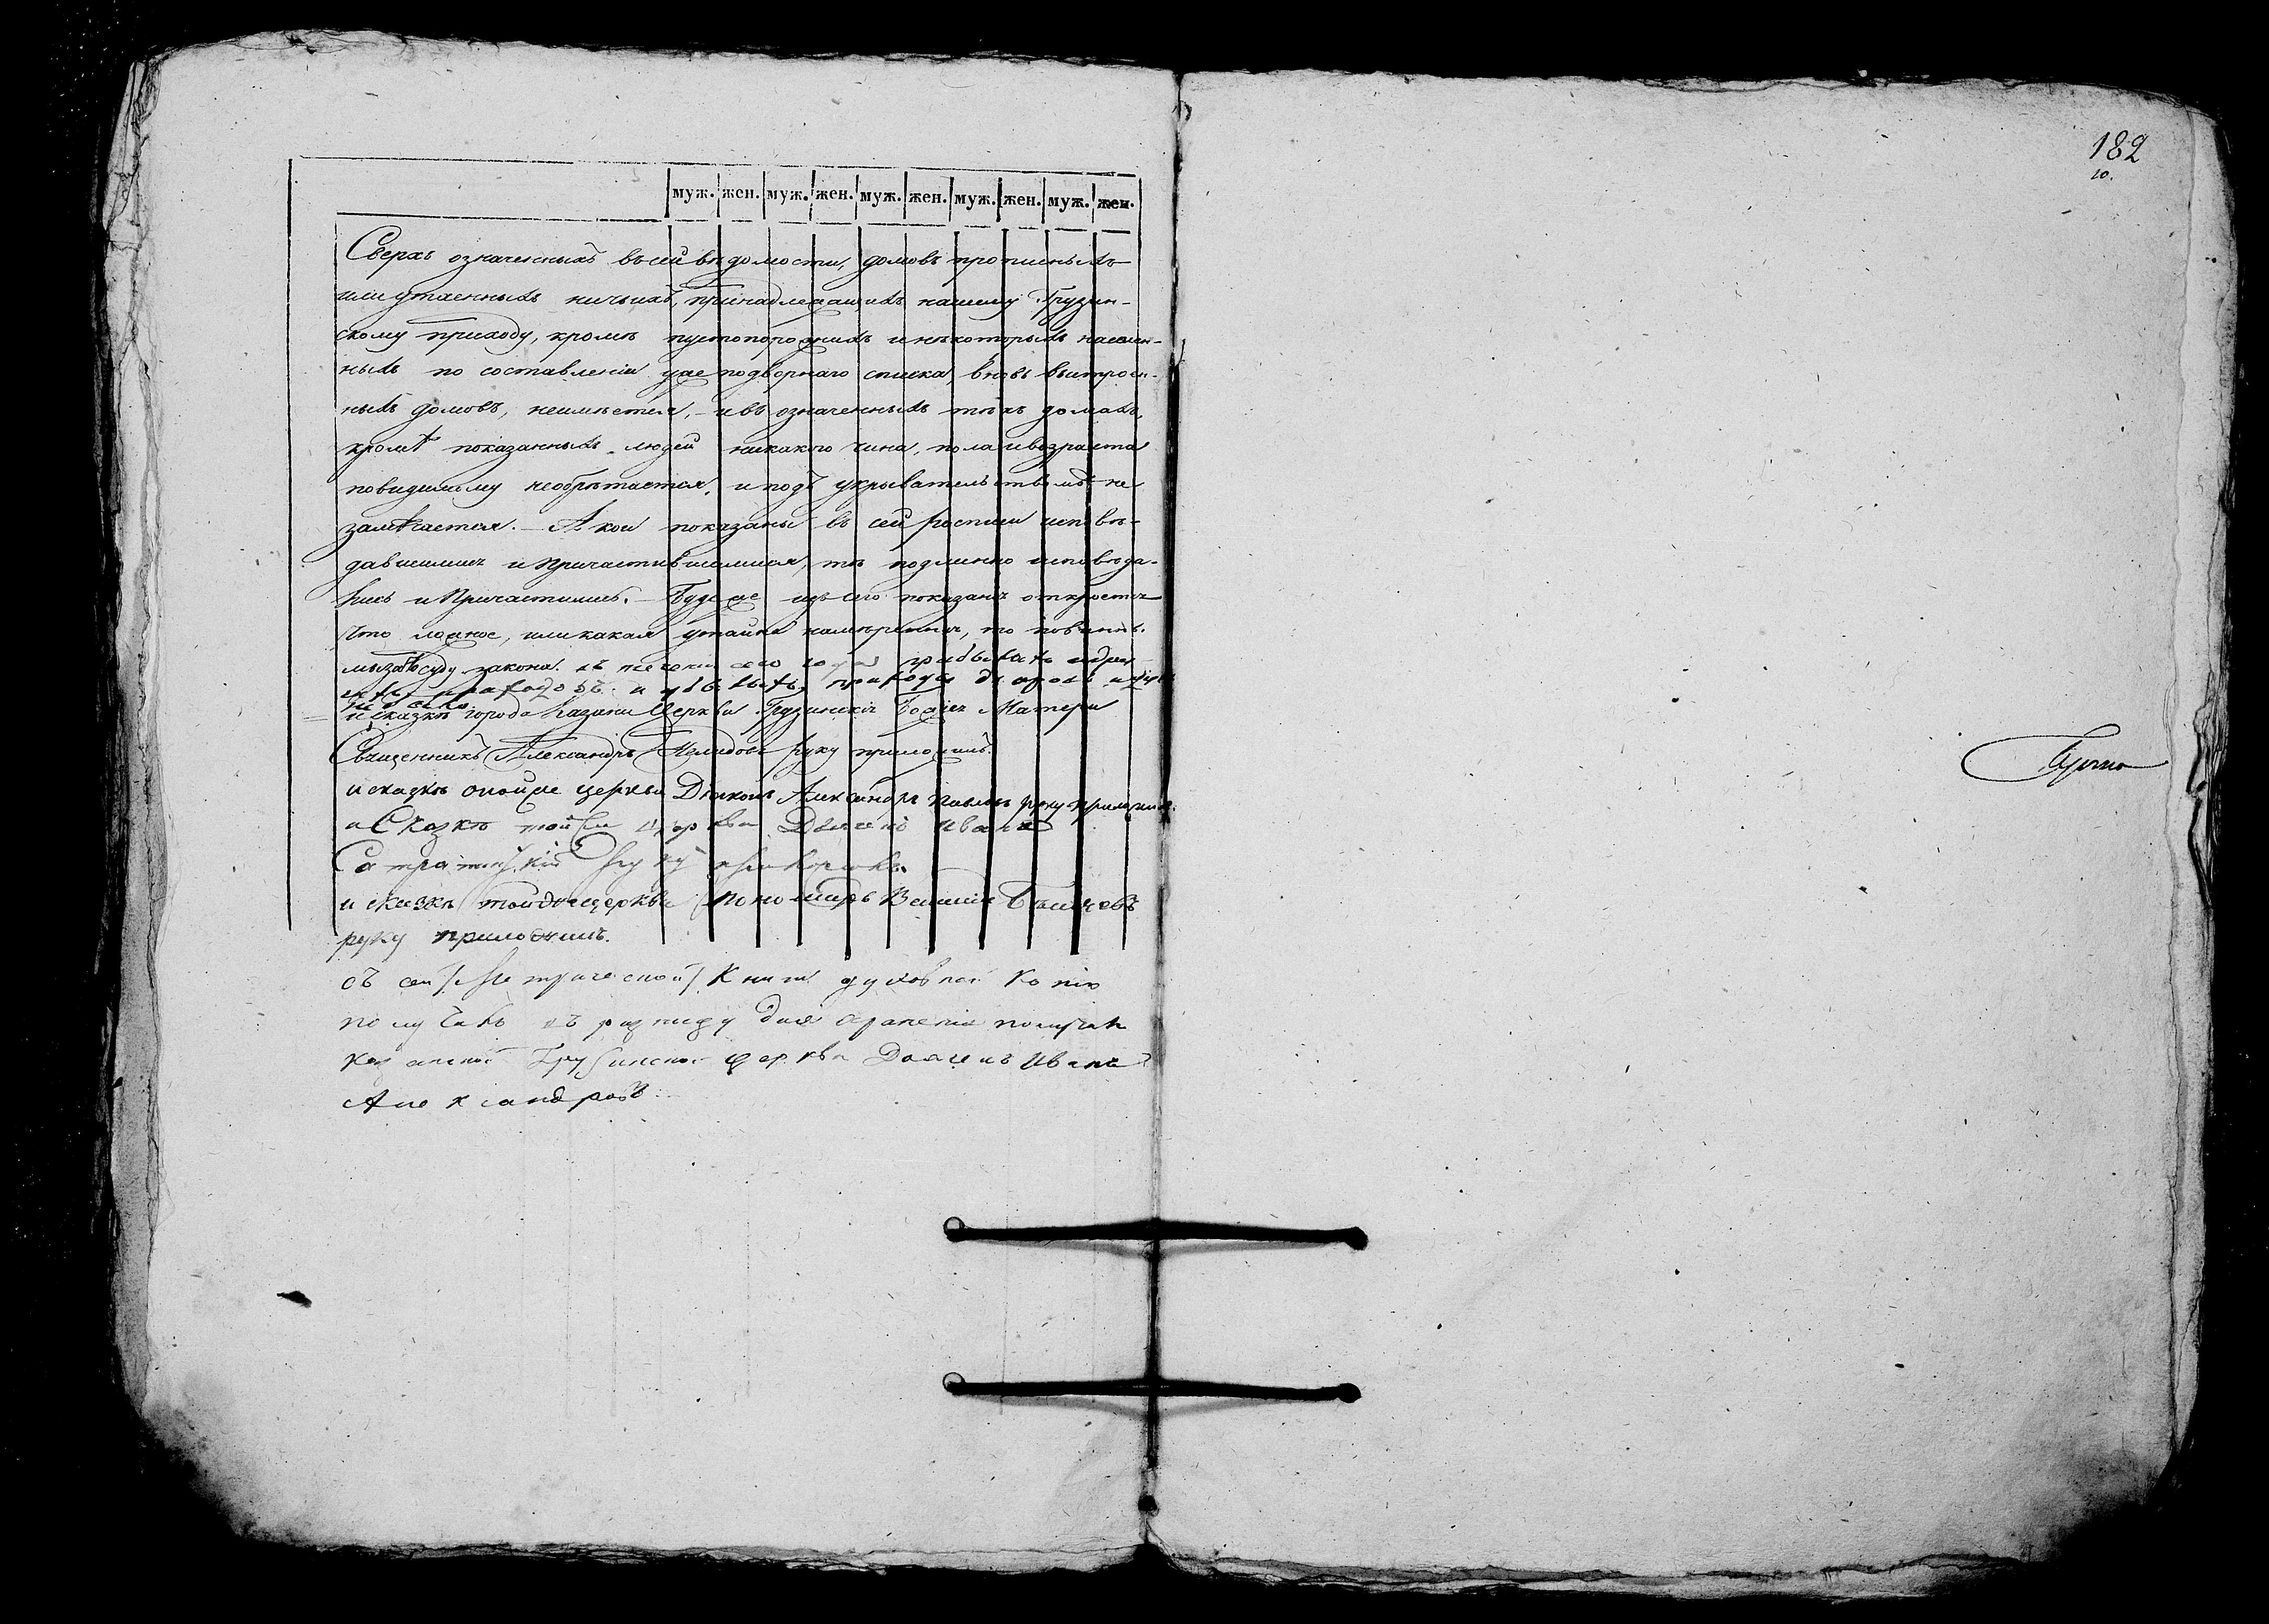 182
10.
муж. жен. муж. жен. муж. жен. муж. жен. муж. жен.
Сверхъ означенныхъ въ сей вѣдомости, домовъ прописныхъ
или утаенныхъ ничьихъ, принадлежащихъ нашему Грузин-
скому приходу, кромѣ пустопорожнихъ и нѣкоторыхъ
ныхъ по составленіи уже подворнаго списка, вновь выстроен-
ныхъ домовъ, неимѣется, - и въ означенныхъ тѣхъ домахъ,
кромѣ показанныхъ людей никакого чина, пола и возраста
повидимому необрѣтается, и подъ укрывательствомъ не
замѣчается. - А кои показаны въ сей росписи исповѣ-
давшимися и Причастившимися, тѣ подлинно исповѣда-
лись и Причастились. - Буде же изъ сего показанія откроется
что ложное, или какая утайка намѣренная, то повинны
мы за то суду закона. въ теченіи сего года прибылыхъ
приходовъ и
и сказкѣ города Казани Церкви Грузинскія Божіей Матери
Священникъ Александръ руку приложилъ.
и сказкѣ оной же церкви Діаконъ Александръ Павловъ руку приложилъ.
и Сказкѣ той же церкви Дьячекъ Иванъ
руку приложилъ.
и сказкѣ той же церкви пономарь Василій
руку приложилъ.
съ сей /Метрической/ Книги духовной Копію
получилъ въ ризницу для храненія получилъ
Казанской Грузинской церкви Дьячекъ Иванъ
Александровъ